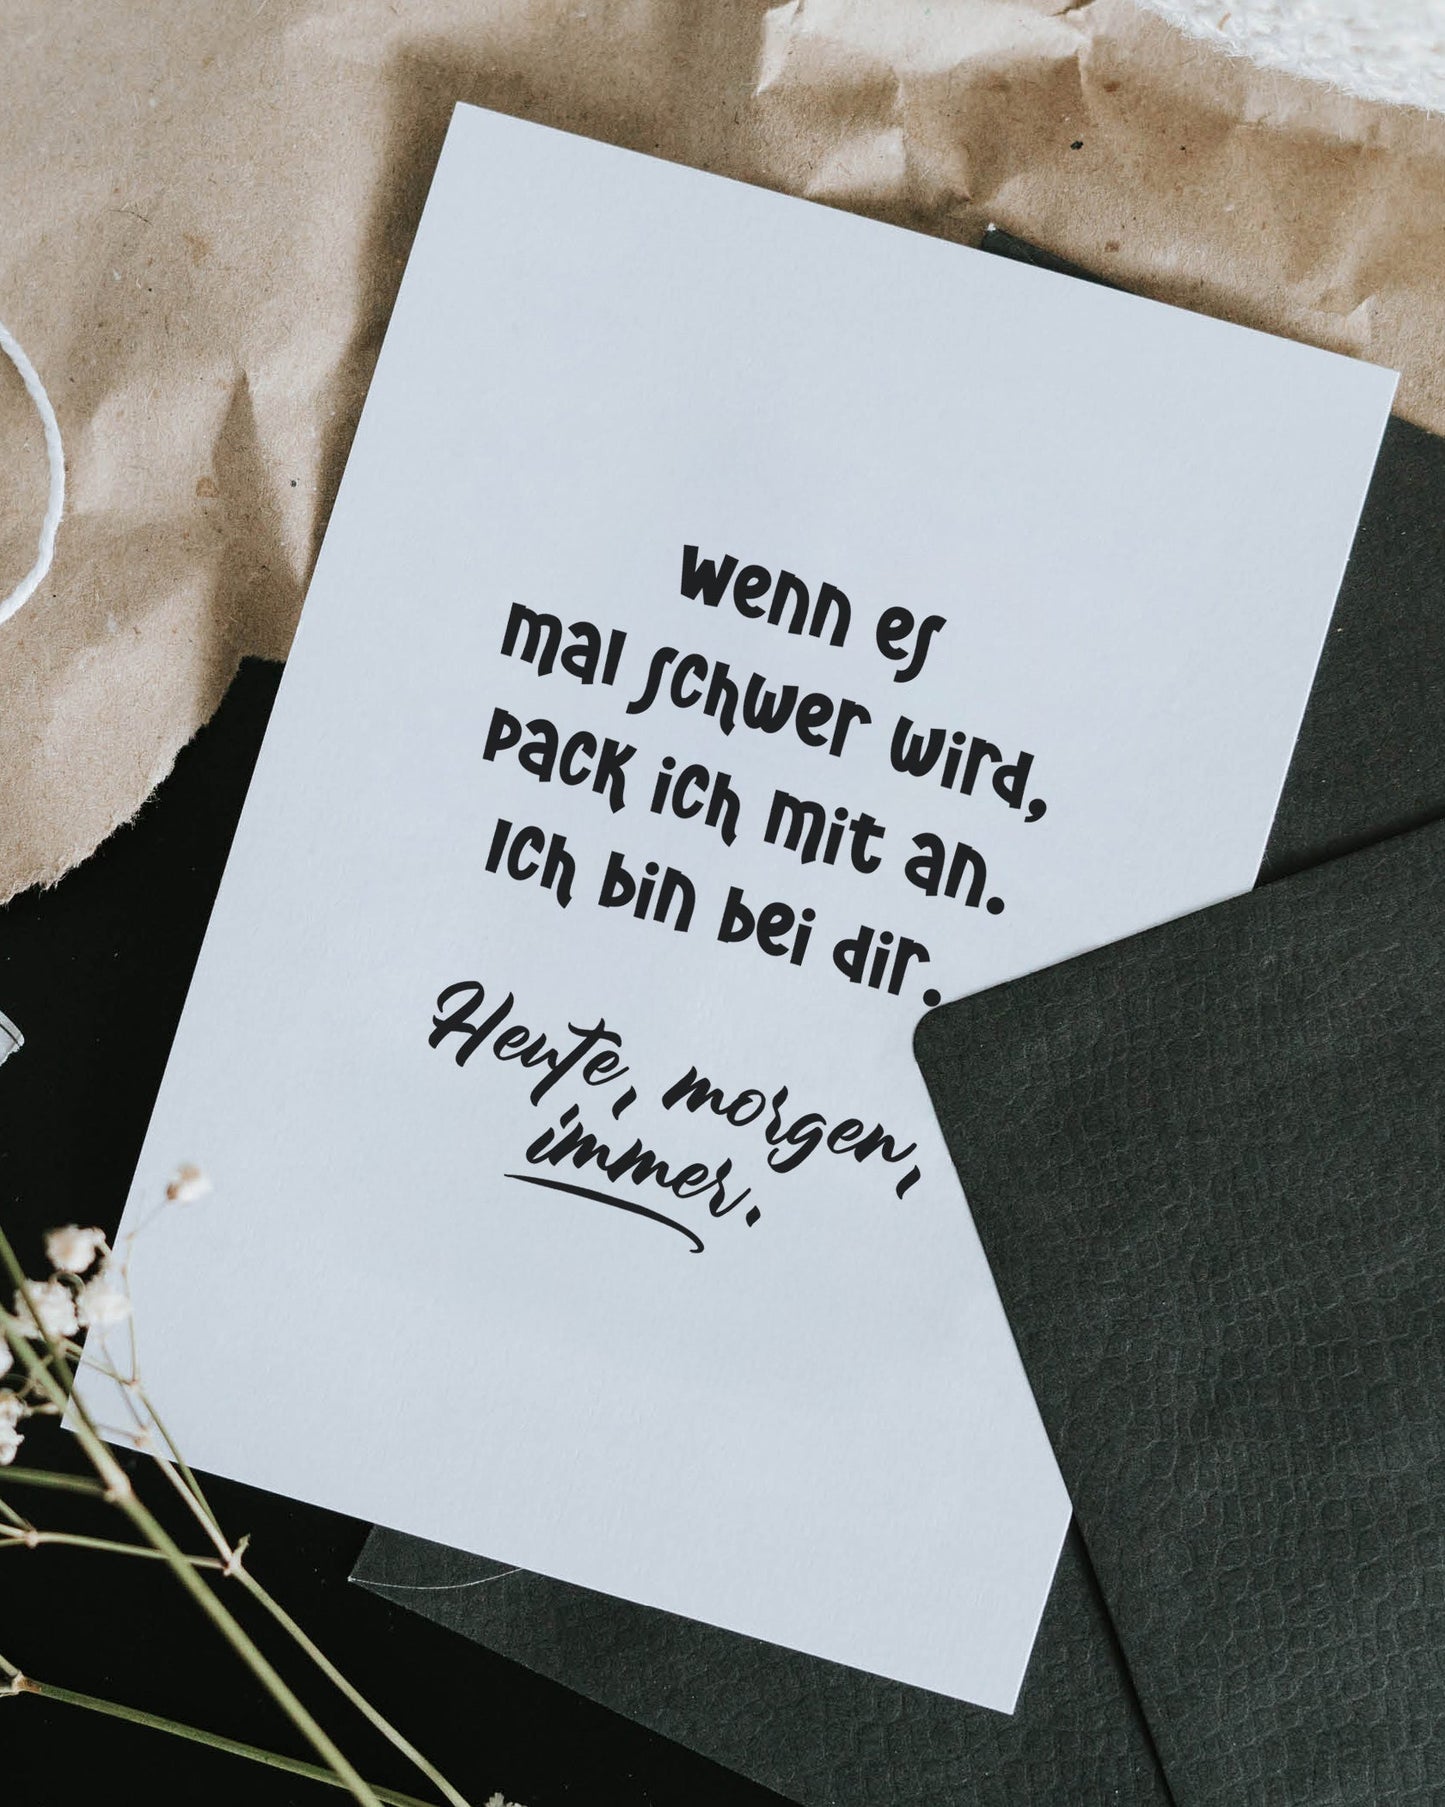 Wenn es
mal schwer wird,
pack ich mit an.
Ich bin bei dir.
Heute, morgen,
immer.